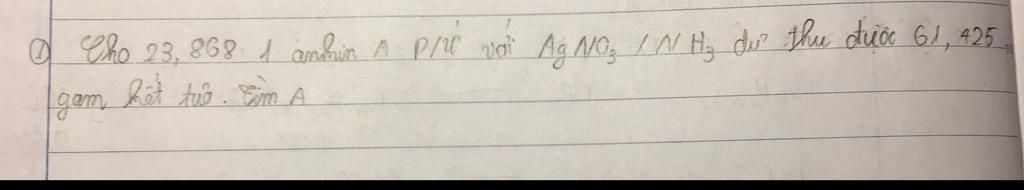 ① Cho 23,868 1 ankin A P/ứ với AgNO3 / NH3 dư thu được 61,425
gam kết tủa. Tìm A